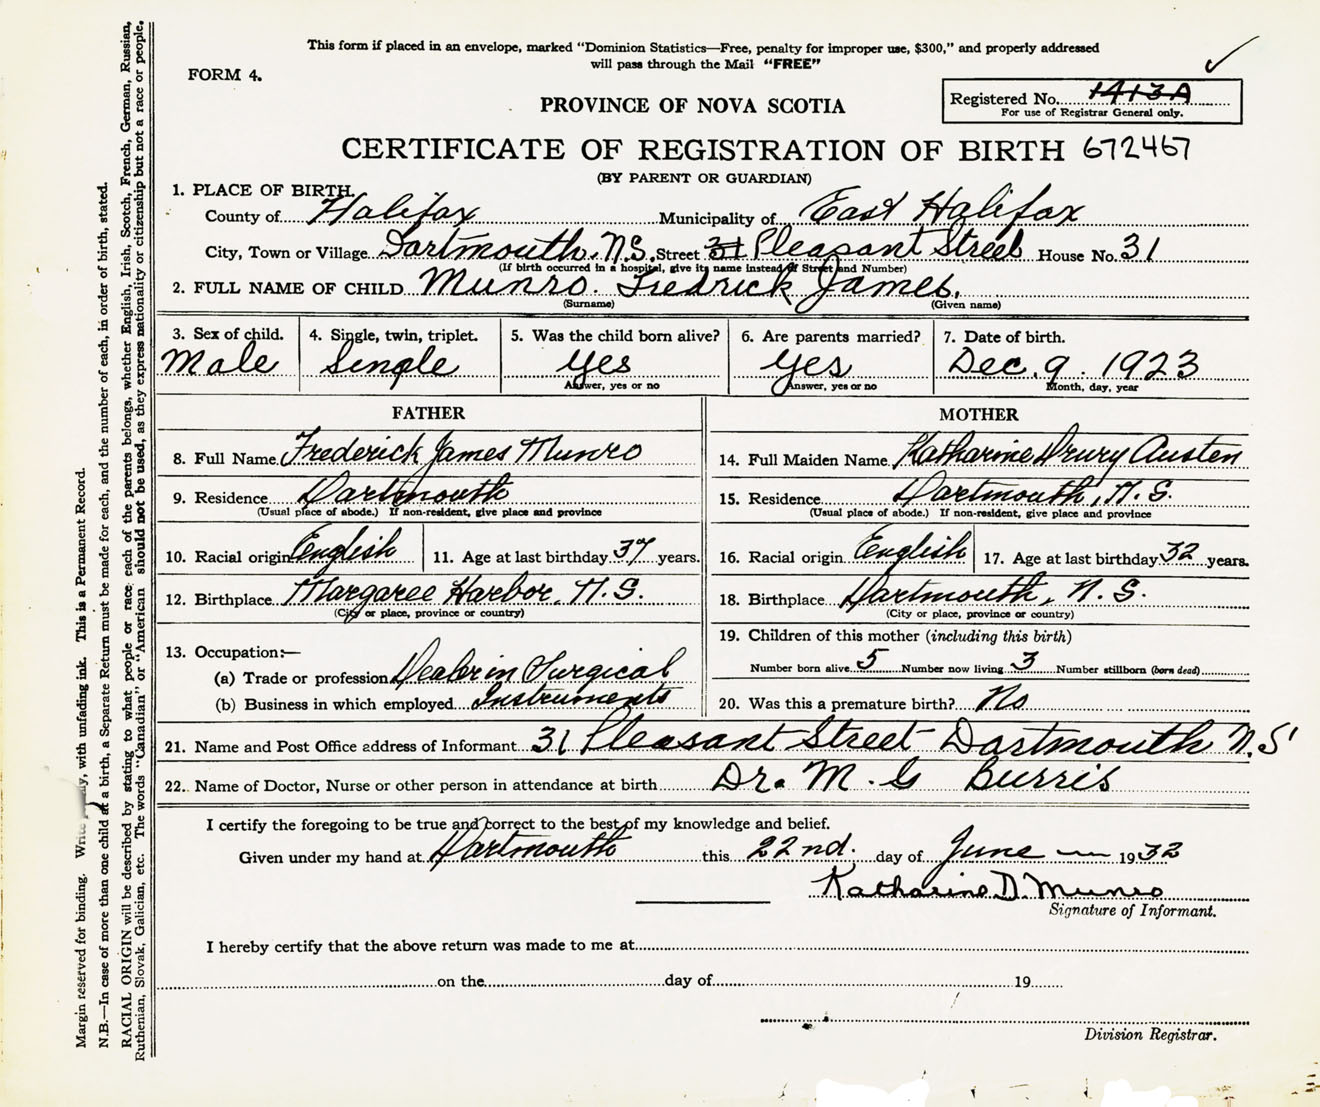 This form if placed in an envelope, marked "Dominion Statistics—Free, penalty for improper use, $300," and properly addressed
will pass through the Mail "FREE"
FORM 4.
Registered No. 1413A
For use of Registrar General only.
PROVINCE OF NOVA SCOTIA
CERTIFICATE OF REGISTRATION OF BIRTH 672467
(BY PARENT OR GUARDIAN)
1. PLACE OF BIRTH.
County of Halifax Municipality of East Halifax
City, Town or Village Dartmouth, N.S. Street 31 Pleasant Street House No. 31
(If birth occurred in a hospital, give its name instead of Street and Number)
2. FULL NAME OF CHILD Munro. Fredrick James.
(Surname) (Given name)
3. Sex of child. 4. Single, twin, triplet. 5. Was the child born alive? 6. Are parents married? 7. Date of birth.
Male Single Yes Yes Dec. 9. 1923
Answer, yes or no Answer, yes or no Month, day, year
FATHER MOTHER
8. Full Name Frederick James Munro 14. Full Maiden Name Katharine Drury Austen
9. Residence Dartmouth 15. Residence Dartmouth, N.S.
(Usual place of abode.) If non-resident, give place and province (Usual place of abode.) If non-resident, give place and province
10. Racial origin English 11. Age at last birthday 37 years. 16. Racial origin English 17. Age at last birthday 32 years.
12. Birthplace Margaree Harbor, N.S. 18. Birthplace Dartmouth, N.S.
(City or place, province or country) (City or place, province or country)
13. Occupation:— 19. Children of this mother (including this birth)
(a) Trade or profession Dealer in Surgical Number born alive 5 Number now living 3 Number stillborn (born dead)
(b) Business in which employed Instruments 20. Was this a premature birth? No
21. Name and Post Office address of Informant 31 Pleasant Street Dartmouth N.S.
22. Name of Doctor, Nurse or other person in attendance at birth Dr. M. G Burris
I certify the foregoing to be true and correct to the best of my knowledge and belief.
Given under my hand at Dartmouth this 22nd. day of June 1932
Katharine D. Munro
Signature of Informant.
I hereby certify that the above return was made to me at
on the day of 19
Division Registrar.
Margin reserved for binding. Write with unfading ink. This is a Permanent Record.
N.B.—In case of more than one child at a birth, a Separate Return must be made for each, and the number of each, in order of birth, stated.
RACIAL ORIGIN will be described by stating to what people or race each of the parents belongs, whether English, Irish, Scotch, French, German, Russian,
Ruthenian, Slovak, Galician, etc. The words "Canadian" or "American should not be used, as they express nationality or citizenship but not a race or people.